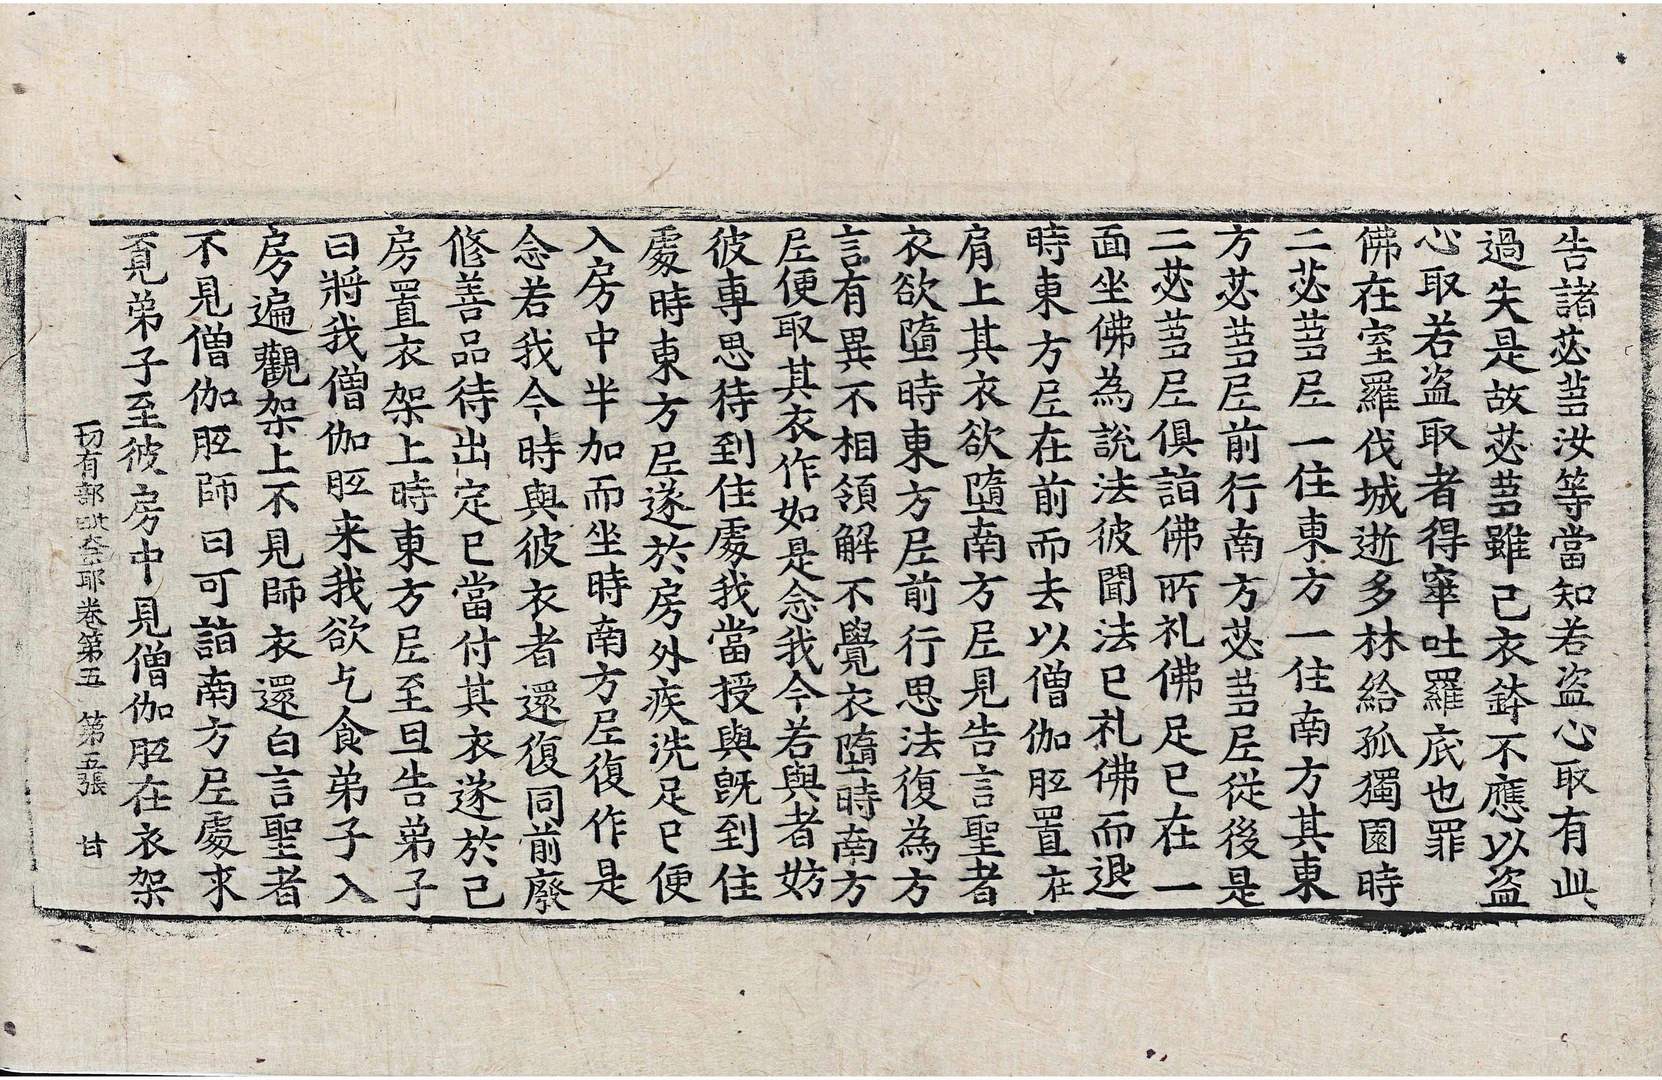 告諸苾蒭汝等當知若盜心取有此
過失是故苾蒭雖己衣鉢不應以盜
心取若盜取者得窣吐羅底也罪
佛在室羅伐城逝多林給孤獨園時
二苾蒭尼一住東方一住南方其東
方苾蒭尼前行南方苾蒭尼從後是
二苾蒭尼俱詣佛所礼佛足已在一
面坐佛為說法彼聞法已礼佛而退
時東方尼在前而去以僧伽胝置在
肩上其衣欲墮南方尼見告言聖者
衣欲墮時東方尼前行思法復為方
言有異不相領解不覺衣墮時南方
尼便取其衣作如是念我今若與者妨
彼專思待到住處我當授與旣到住
處時東方尼遂於房外疾洗足已便
入房中半加而坐時南方尼復作是
念若我今時與彼衣者還復同前廢
修善品待出定已當付其衣遂於己
房置衣架上時東方尼至旦告弟子
曰將我僧伽胝来我欲乞食弟子入
房遍觀架上不見師衣還白言聖者
不見僧伽胝師曰可詣南方尼處求
覔弟子至彼房中見僧伽胝在衣架
切有部毗奈耶卷第五　第五張　甘